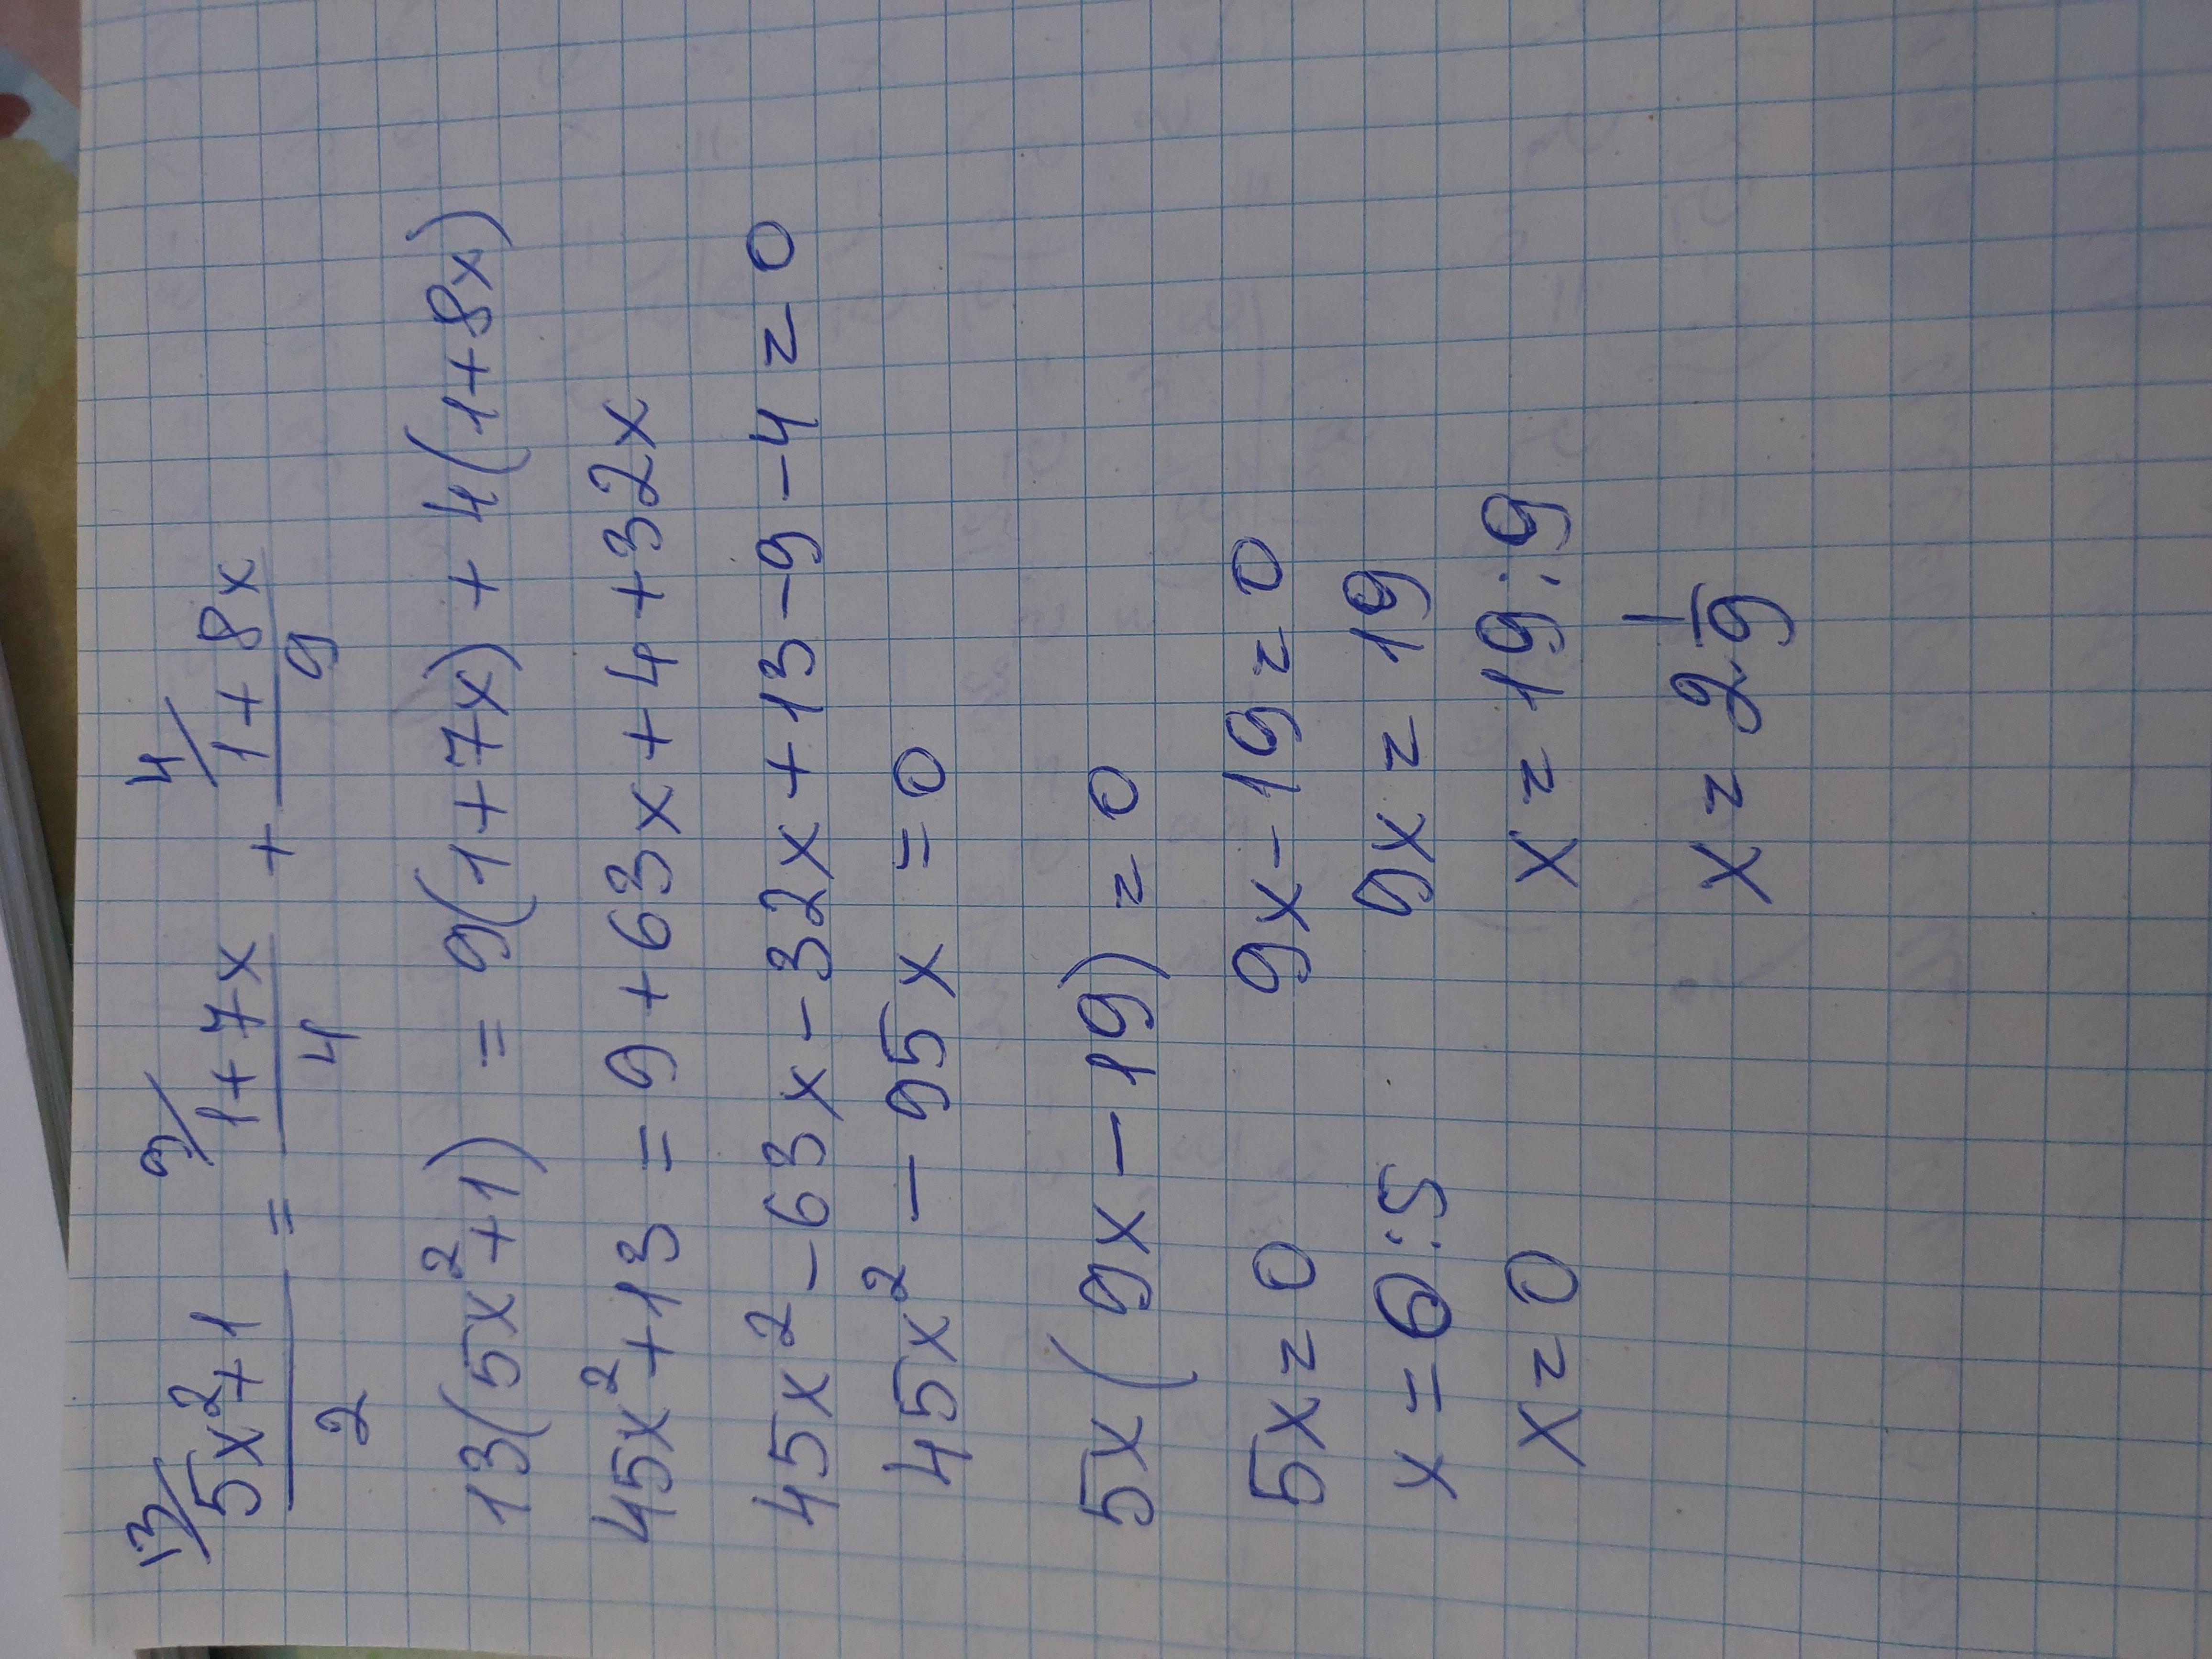 13/ 9/ 4/
(5x²+1)/2 = (1+7x)/4 + (1+8x)/9
13(5x²+1) = 9(1+7x) + 4(1+8x)
45x²+13 = 9+63x+4+32x
45x²-63x-32x+13-9-4=0
45x² - 95x = 0
5x(9x-19)=0
5x=0 9x-19=0
x=0:5 9x=19
x=0 x=19:9
x=2 1/9